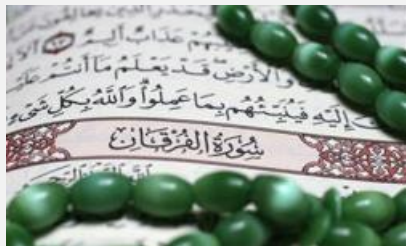 يُصِيبَهُمْ عَذَابٌ أَلِيمٌ
وَالْأَرْضِ قَدْ يَعْلَمُ مَا أَنتُمْ عَلَيْهِ
إِلَيْهِ فَيُنَبِّئُهُم بِمَا عَمِلُوا وَاللَّهُ بِكُلِّ شَيْءٍ
سُورَةُ الْفُرْقَانِ